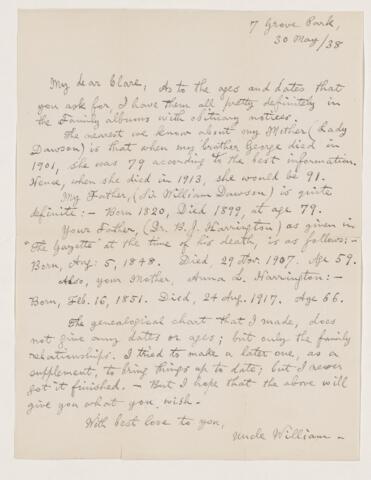 7 Grove Park,
30 May/38
My dear Clare, As to the ages and dates that
you ask for, I have them all pretty definitely in
the Family albums with obituary notices.
The nearest we know about my Mother (Lady
Dawson) is that when my brother George died in
1901, she was 79 according to the best information.
Hence, when she died in 1913, she would be 91.
My Father, (Sir William Dawson) is quite
definite:- Born 1820, Died 1899, at age 79.
Your Father, (Dr. B. J. Harrington) as given in
"The Gazette" at the time of his death, is as follows;-
Born, Aug. 5, 1848. Died, 29 Nov. 1907. Age 59.
Also, your Mother, Anna L. Harrington:-
Born, Feb. 16, 1851. Died, 24 Aug. 1917. Age 66.
The genealogical chart that I made, does
not give any dates or ages; but only the family
relationships. I tried to make a later one, as a
supplement, to bring things up to date; but I never
got it finished. - But I hope that the above will
give you what you wish. -
With best love to you,
Uncle William -